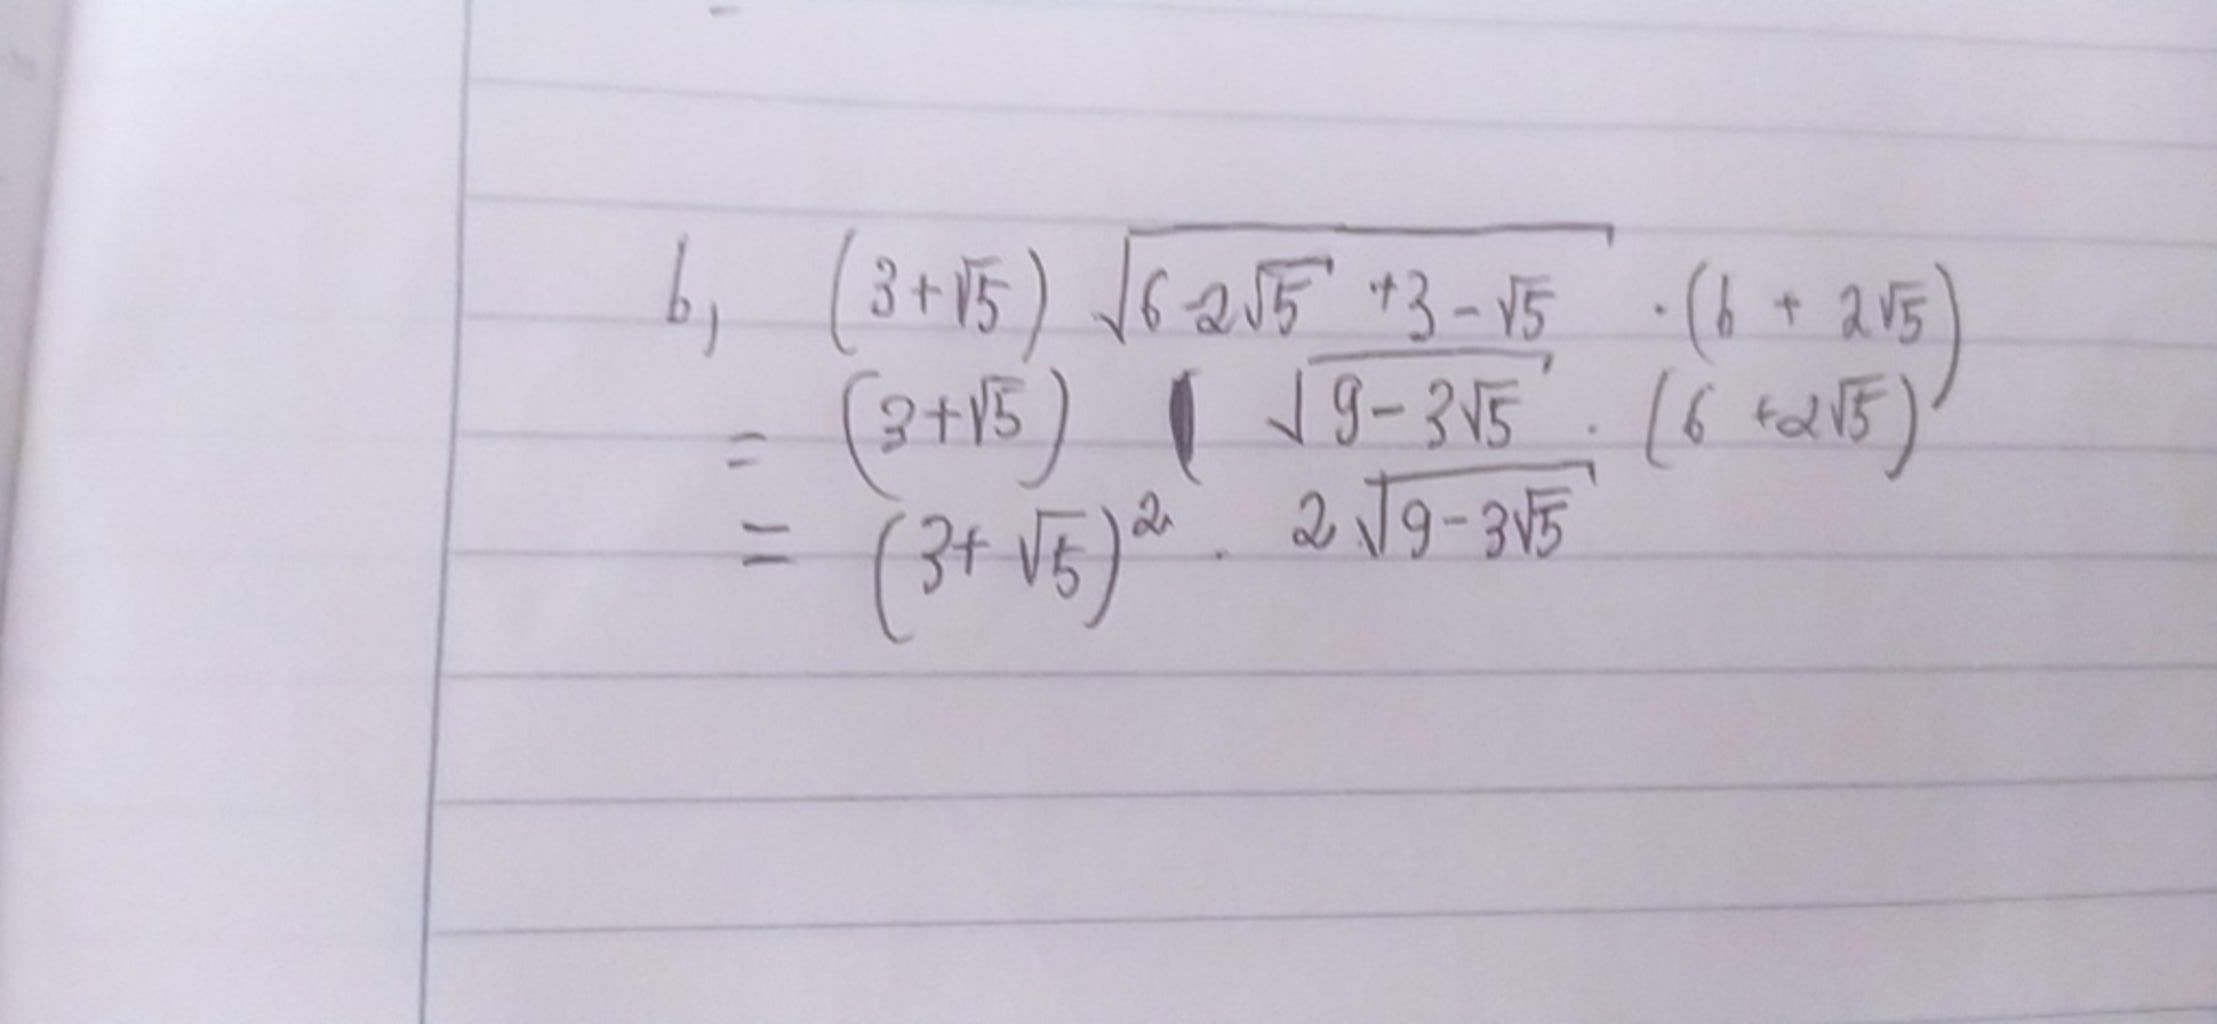 b, (3+√5) √(6-2√5 +3-√5) · (6 + 2√5)
= (3+√5) √(9-3√5) · (6 +2√5)
= (3+ √5)² · 2√(9-3√5)